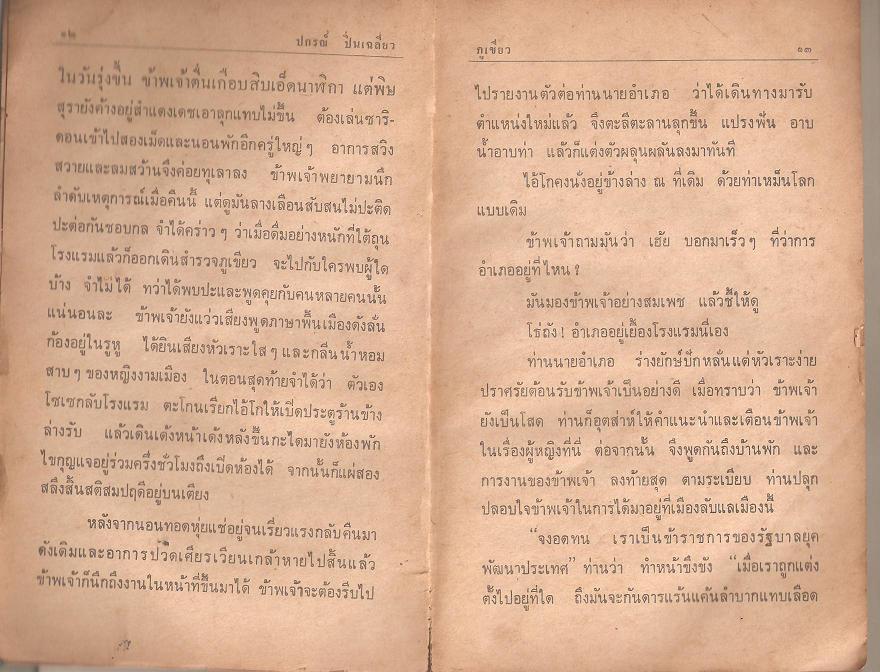 ๑๒
ปกรณ์ ปิ่นเฉลียว
ในวันรุ่งขึ้น ข้าพเจ้าตื่นเกือบสิบเอ็ดนาฬิกา แต่พิษ
สุรายังค้างอยู่สำแดงเดชเอาลุกแทบไม่ขึ้น ต้องเล่นซาริ-
ดอนเข้าไปสองเม็ดและนอนพักอีกครู่ใหญ่ๆ อาการสวิง
สวายและลมสว้านจึงค่อยทุเลาลง ข้าพเจ้าพยายามนึก
ลำดับเหตุการณ์เมื่อคืนนี้ แต่ดูมันลางเลือนสับสนไม่ปะติด
ปะต่อกันชอบกล จำได้คร่าวๆ ว่าเมื่อดื่มอย่างหนักที่ใต้ถุน
โรงแรมแล้วก็ออกเดินสำรวจภูเขียว จะไปกับใครพบผู้ใด
บ้าง จำไม่ได้ ทว่าได้พบปะและพูดคุยกับคนหลายคนนั้น
แน่นอนละ ข้าพเจ้ายังแว่วเสียงพูดภาษาพื้นเมืองดังลั่น
ก้องอยู่ในรูหู ได้ยินเสียงหัวเราะใสๆ และกลิ่นน้ำหอม
สาบๆ ของหญิงงามเมือง ในตอนสุดท้ายจำได้ว่า ตัวเอง
โซเซกลับโรงแรม ตะโกนเรียกไอ้โกให้เปิดประตูร้านข้าง
ล่างรับ แล้วเดินเด้งหน้าเด้งหลังขึ้นกะไดมายังห้องพัก
ไขกุญแจอยู่ร่วมครึ่งชั่วโมงถึงเปิดห้องได้ จากนั้นก็แผ่สอง
สลึงสิ้นสติสมปฤดีอยู่บนเตียง
หลังจากนอนทอดหุ่ยแช่อยู่จนเรี่ยวแรงกลับคืนมา
ดังเดิมและอาการปวดเศียรเวียนเกล้าหายไปสิ้นแล้ว
ข้าพเจ้าก็นึกถึงงานในหน้าที่ขึ้นมาได้ ข้าพเจ้าจะต้องรีบไป
ภูเขียว
๑๓
ไปรายงานตัวต่อท่านนายอำเภอ ว่าได้เดินทางมารับ
ตำแหน่งใหม่แล้ว จึงตะลีตะลานลุกขึ้น แปรงฟัน อาบ
น้ำอาบท่า แล้วก็แต่งตัวผลุนผลันลงมาทันที
ไอ้โกคงนั่งอยู่ข้างล่าง ณ ที่เดิม ด้วยท่าเหม็นโลก
แบบเดิม
ข้าพเจ้าถามมันว่า เฮ้ย บอกมาเร็วๆ ที่ว่าการ
อำเภออยู่ที่ไหน?
มันมองข้าพเจ้าอย่างสมเพช แล้วชี้ให้ดู
โธ่ถัง! อำเภออยู่เยื้องโรงแรมนี่เอง
ท่านนายอำเภอ ร่างยักษ์ปักหลั่นแต่หัวเราะง่าย
ปราศรัยต้อนรับข้าพเจ้าเป็นอย่างดี เมื่อทราบว่า ข้าพเจ้า
ยังเป็นโสด ท่านก็อุตส่าห์ให้คำแนะนำและเตือนข้าพเจ้า
ในเรื่องผู้หญิงที่นี่ ต่อจากนั้น จึงพูดกันถึงบ้านพัก และ
การงานของข้าพเจ้า ลงท้ายสุด ตามระเบียบ ท่านปลุก
ปลอบใจข้าพเจ้าในการได้มาอยู่ที่เมืองลับแลเมืองนี้
“จงอดทน เราเป็นข้าราชการของรัฐบาลยุค
พัฒนาประเทศ” ท่านว่า ทำหน้าขึงขัง “เมื่อเราถูกแต่ง
ตั้งไปอยู่ที่ใด ถึงมันจะกันดารแร้นแค้นลำบากแทบเลือด